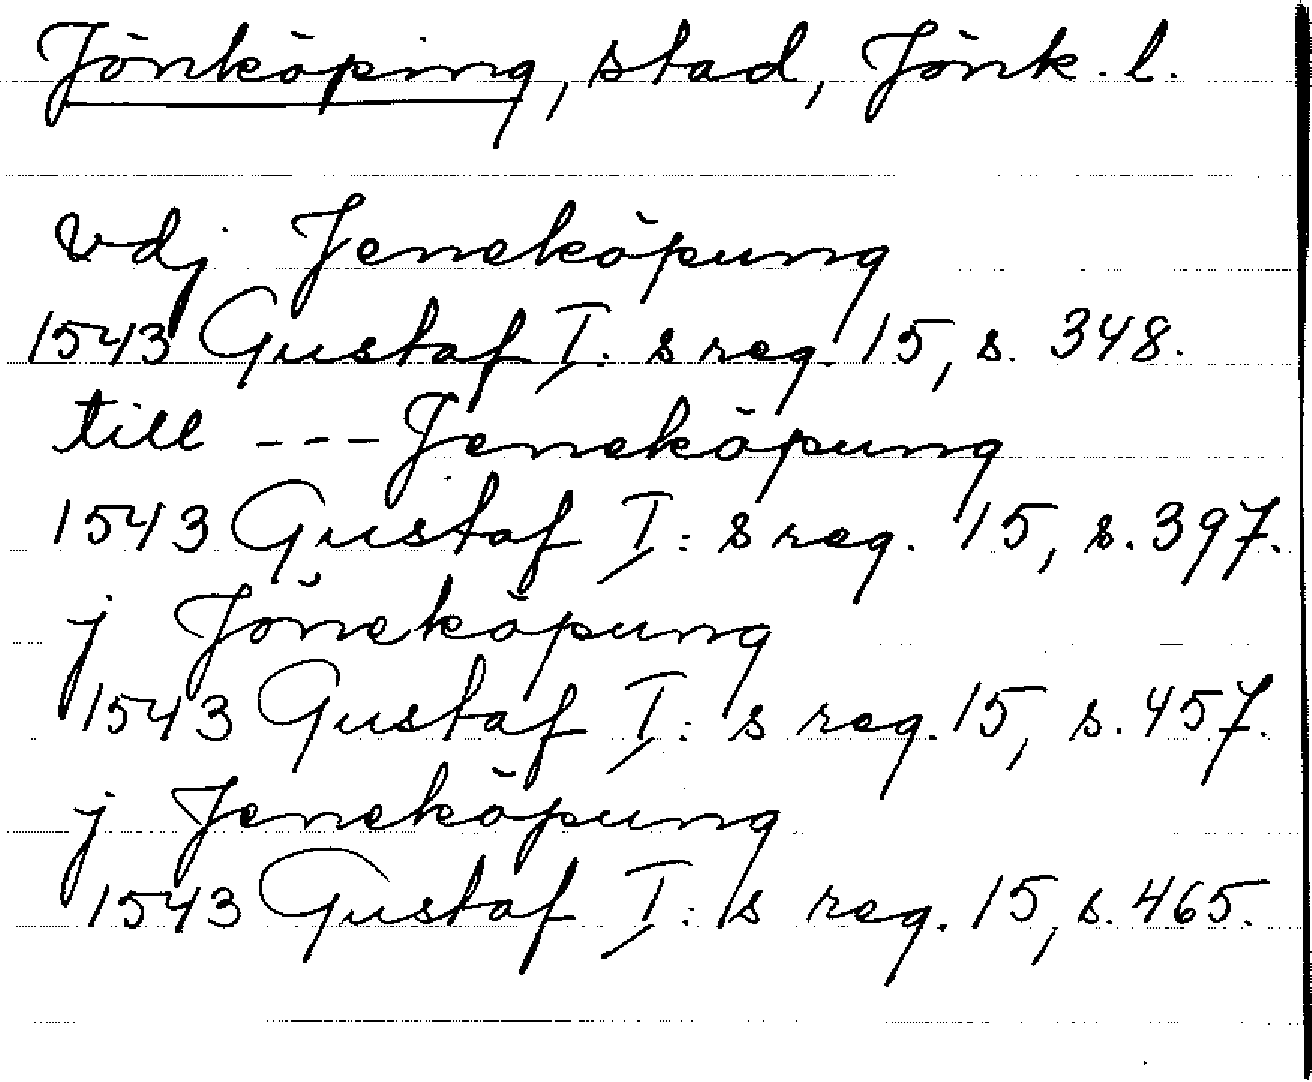 Jönköping, stad, Jönk. l.
vdj Jeneköpung
1543 Gustaf I: s reg. 15, s. 348.
till --- Jeneköpung
1543 Gustaf I: s reg. 15, s. 397.
j Jöneköpung
1543 Gustaf I: s reg. 15, s. 457.
j Jeneköpung
1543 Gustaf I: s reg. 15, s. 465.